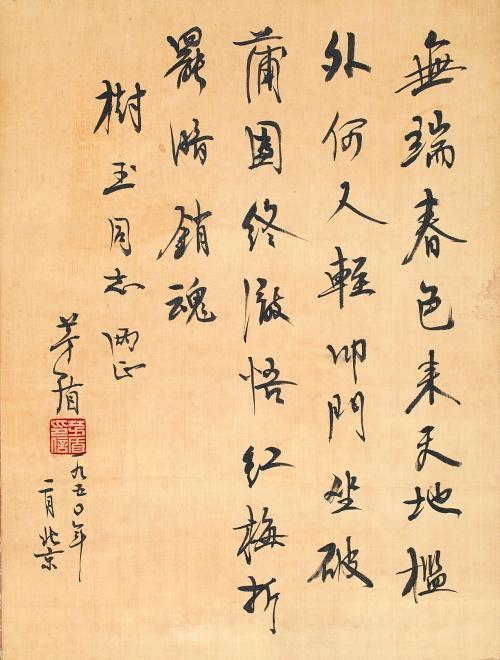 無端春色来天地檻
外何人輕叩門坐破
蒲團終澈悟红梅折
罷暗銷魂
樹玉同志 兩正
茅盾
茅盾
印信
一九五〇年
二月北京